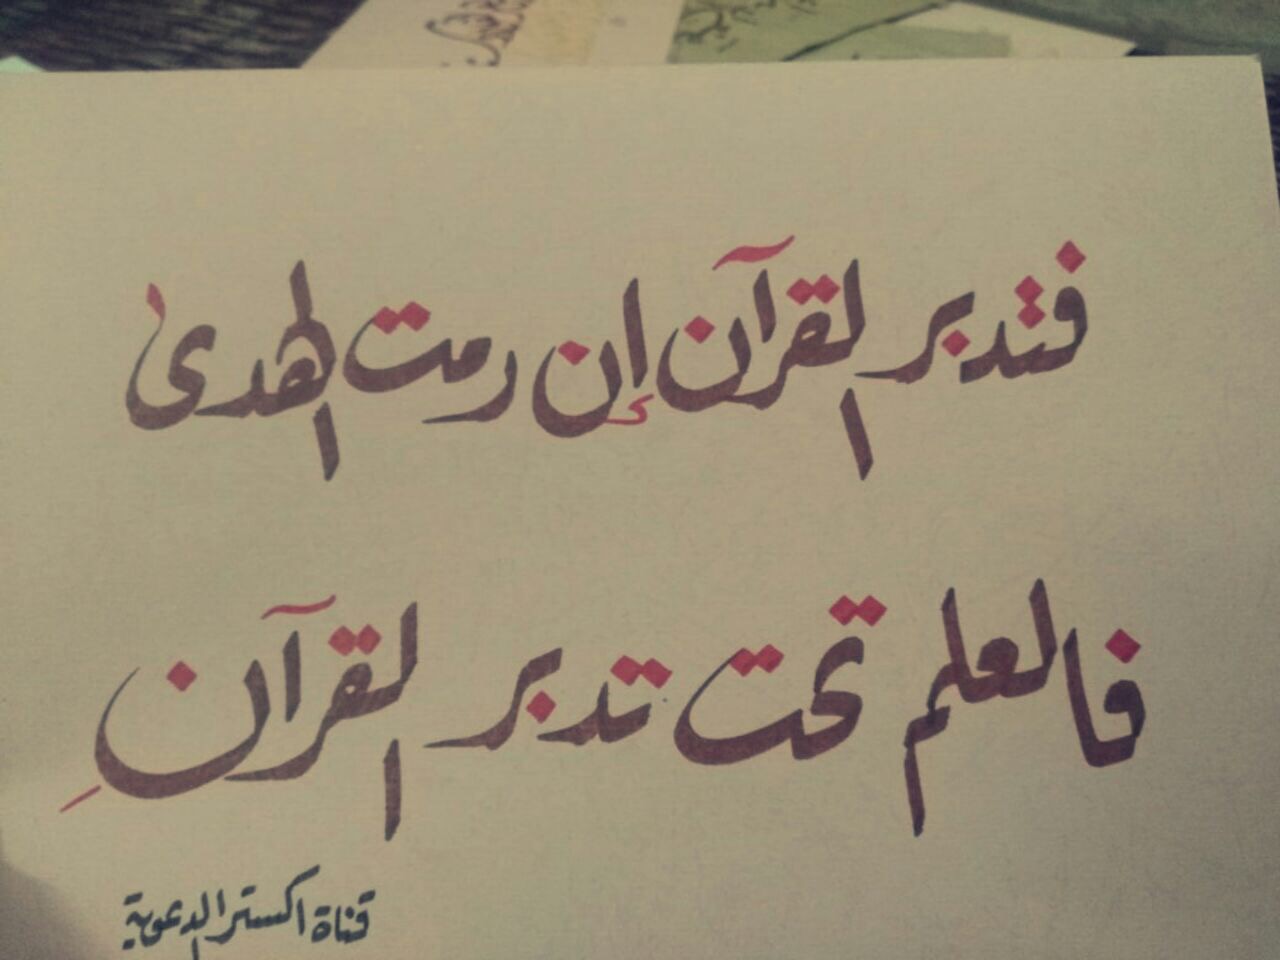 فتدبر القرآن إن رمت الهدىٰ
فالعلم تحت تدبر القرآنِ
قناة اكسترا الدعوية